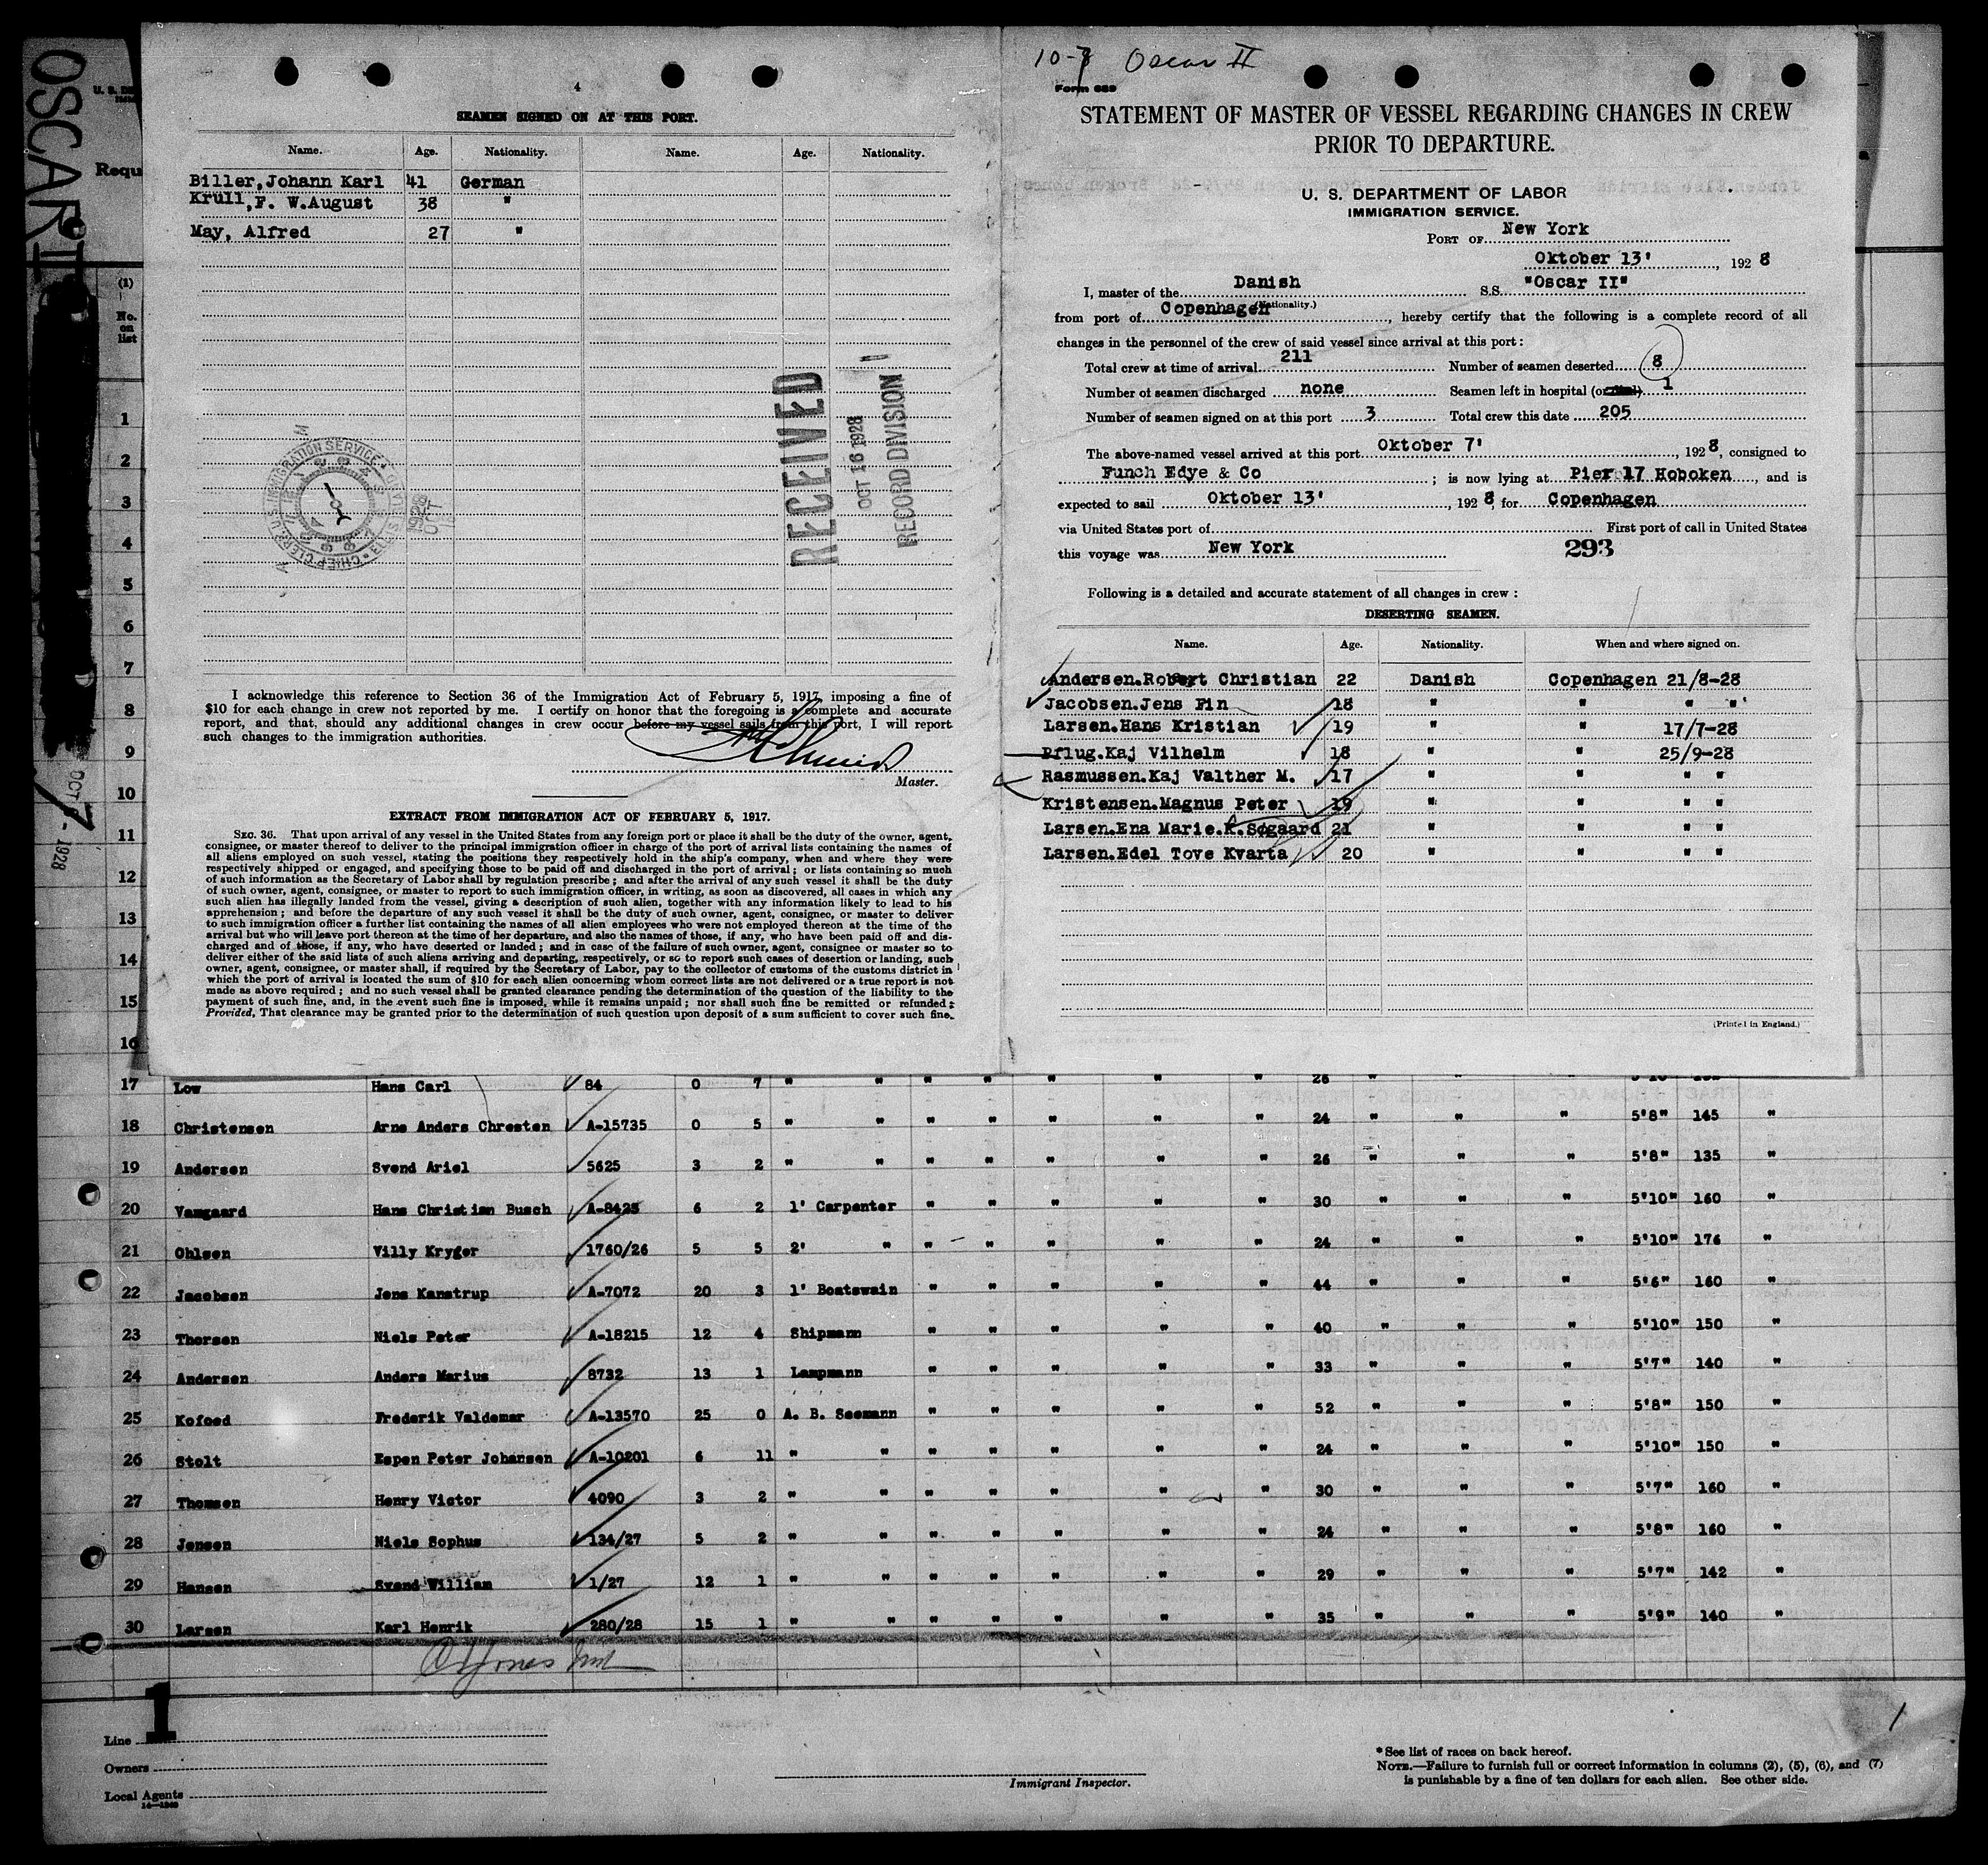 OSCAR II
U. S. DE
Requ
(1)
No.
on
list
OCT 7- 1928
4
SEAMEN SIGNED ON AT THIS PORT.
Name. Age. Nationality. Name. Age. Nationality.
Biller,Johann Karl 41 German
Krull,F. W.August 38 "
May, Alfred 27 "
RECEIVED
OCT 16 1928
RECORD DIVISION
I acknowledge this reference to Section 36 of the Immigration Act of February 5, 1917, imposing a fine of
$10 for each change in crew not reported by me. I certify on honor that the foregoing is a complete and accurate
report, and that, should any additional changes in crew occur before my vessel sails from this port, I will report
such changes to the immigration authorities.
Master.
EXTRACT FROM IMMIGRATION ACT OF FEBRUARY 5, 1917.
SEC. 36. That upon arrival of any vessel in the United States from any foreign port or place it shall be the duty of the owner, agent,
consignee, or master thereof to deliver to the principal immigration officer in charge of the port of arrival lists containing the names of
all aliens employed on such vessel, stating the positions they respectively hold in the ship's company, when and where they were
respectively shipped or engaged, and specifying those to be paid off and discharged in the port of arrival; or lists containing so much
of such information as the Secretary of Labor shall by regulation prescribe; and after the arrival of any such vessel it shall be the duty
of such owner, agent, consignee, or master to report to such immigration officer, in writing, as soon as discovered, all cases in which any
such alien has illegally landed from the vessel, giving a description of such alien, together with any information likely to lead to his
apprehension; and before the departure of any such vessel it shall be the duty of such owner, agent, consignee, or master to deliver
to such immigration officer a further list containing the names of all alien employees who were not employed thereon at the time of the
arrival but who will leave port thereon at the time of her departure, and also the names of those, if any, who have been paid off and dis-
charged and of those, if any, who have deserted or landed; and in case of the failure of such owner, agent, consignee or master so to
deliver either of the said lists of such aliens arriving and departing, respectively, or so to report such cases of desertion or landing, such
owner, agent, consignee, or master shall, if required by the Secretary of Labor, pay to the collector of customs of the customs district in
which the port of arrival is located the sum of $10 for each alien concerning whom correct lists are not delivered or a true report is not
made as above required; and no such vessel shall be granted clearance pending the determination of the question of the liability to the
payment of such fine, and, in the event such fine is imposed, while it remains unpaid; nor shall such fine be remitted or refunded:
Provided, That clearance may be granted prior to the determination of such question upon deposit of a sum sufficient to cover such fine.
Oscar II
Form 689
STATEMENT OF MASTER OF VESSEL REGARDING CHANGES IN CREW
PRIOR TO DEPARTURE.
U. S. DEPARTMENT OF LABOR
IMMIGRATION SERVICE.
PORT OF New York
Oktober 13' , 1928
I, master of the Danish S.S. "Oscar II"
(Nationality.)
from port of Copenhagen , hereby certify that the following is a complete record of all
changes in the personnel of the crew of said vessel since arrival at this port:
Total crew at time of arrival 211 Number of seamen deserted 8
Number of seamen discharged none Seamen left in hospital (or 1
Number of seamen signed on at this port 3 Total crew this date 205
The above-named vessel arrived at this port Oktober 7' , 1928, consigned to
Funch Edye & Co ; is now lying at Pier 17 Hoboken , and is
expected to sail Oktober 13' , 1928, for Copenhagen
via United States port of First port of call in United States
this voyage was New York 293
Following is a detailed and accurate statement of all changes in crew:
DESERTING SEAMEN.
Name. Age. Nationality. When and where signed on.
Andersen.Robert Christian 22 Danish Copenhagen 21/8-28
Jacobsen.Jens Fin 18 " " " "
Larsen.Hans Kristian 19 " " 17/7-28
Pflug.Kaj Vilhelm 18 " " 25/9-28
Rasmussen.Kaj Valther M. 17 " " " "
Kristensen.Magnus Peter 19 " " " "
Larsen.Ena Marie.K.Søgaard 21 " " " "
Larsen.Edel Tove Kvarta 20 " " " "
(Printed in England.)
1
2
3
4
5
6
7
8
9
10
11
12
13
14
15
16
17 Low Hans Carl 84 0 7 " " " " " " 26 " " "
18 Christensen Arne Anders Chresten A-15735 0 5 " " " " " " " 24 " " " 5'8" 145 "
19 Andersen Svend Ariel 5625 3 2 " " " " " " " 26 " " " 5'8" 135 "
20 Vamgaard Hans Christian Busch A-8425 6 2 1' Carpenter " " " " " 30 " " " 5'10" 160 "
21 Ohlsen Villy Kryger 1760/26 5 5 2' " " " " " " 24 " " " 5'10" 176 "
22 Jacobsen Jens Kanstrup A-7072 20 3 1' Boatswain " " " " " 44 " " " 5'6" 160 "
23 Thorsen Niels Peter A-18215 12 4 Shipmann " " " " " 40 " " " 5'10" 150 "
24 Andersen Anders Marius 8732 13 1 Lampmann " " " " " 33 " " " 5'7" 140 "
25 Kofoed Frederik Valdemar A-13570 25 0 A. B. Seemann " " " " " 52 " " " 5'8" 150 "
26 Stolt Espen Peter Johansen A-10201 6 11 " " " " " " " 24 " " " 5'10" 150 "
27 Thomsen Henry Victor 4090 3 2 " " " " " " " 30 " " " 5'7" 160 "
28 Jensen Niels Sophus 134/27 5 2 " " " " " " " 24 " " " 5'8" 160 "
29 Hansen Svend Willian 1/27 12 1 " " " " " " " 29 " " " 5'7" 142 "
30 Larsen Karl Henrik 280/28 15 1 " " " " " " " 35 " " " 5'9" 140 "
1
Line
Owners
Local Agents
Immigrant Inspector.
*See list of races on back hereof.
NOTE.—Failure to furnish full or correct information in columns (2), (5), (6), and (7)
is punishable by a fine of ten dollars for each alien. See other side.